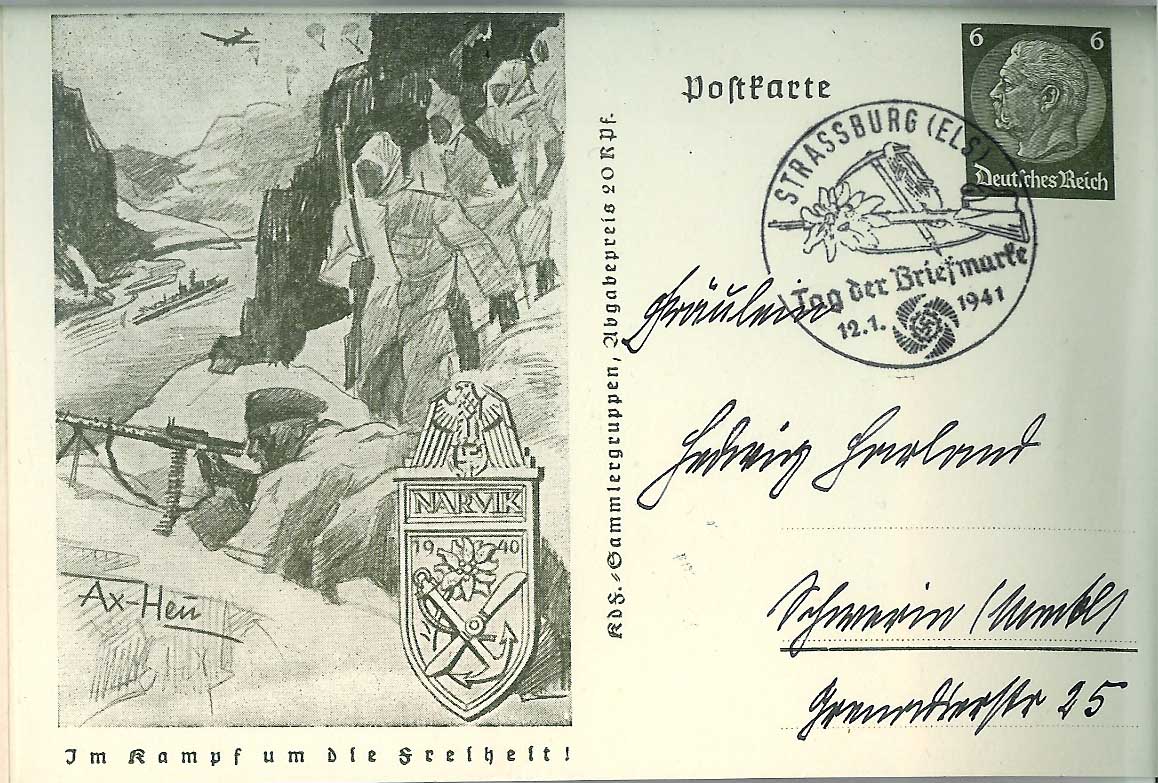 Ax-Heu
NARVIK
1940
Im Kampf um die Freiheit!
KdF.-Sammlergruppen, Abgabepreis 20 Rpf.
Postkarte
6 6
Deutsches Reich
STRASSBURG (ELS)
Tag der Briefmarke
12.1. 1941
Fräulein
Hedwig Harland
Schwerin (Meckl)
Grenadierstr 25